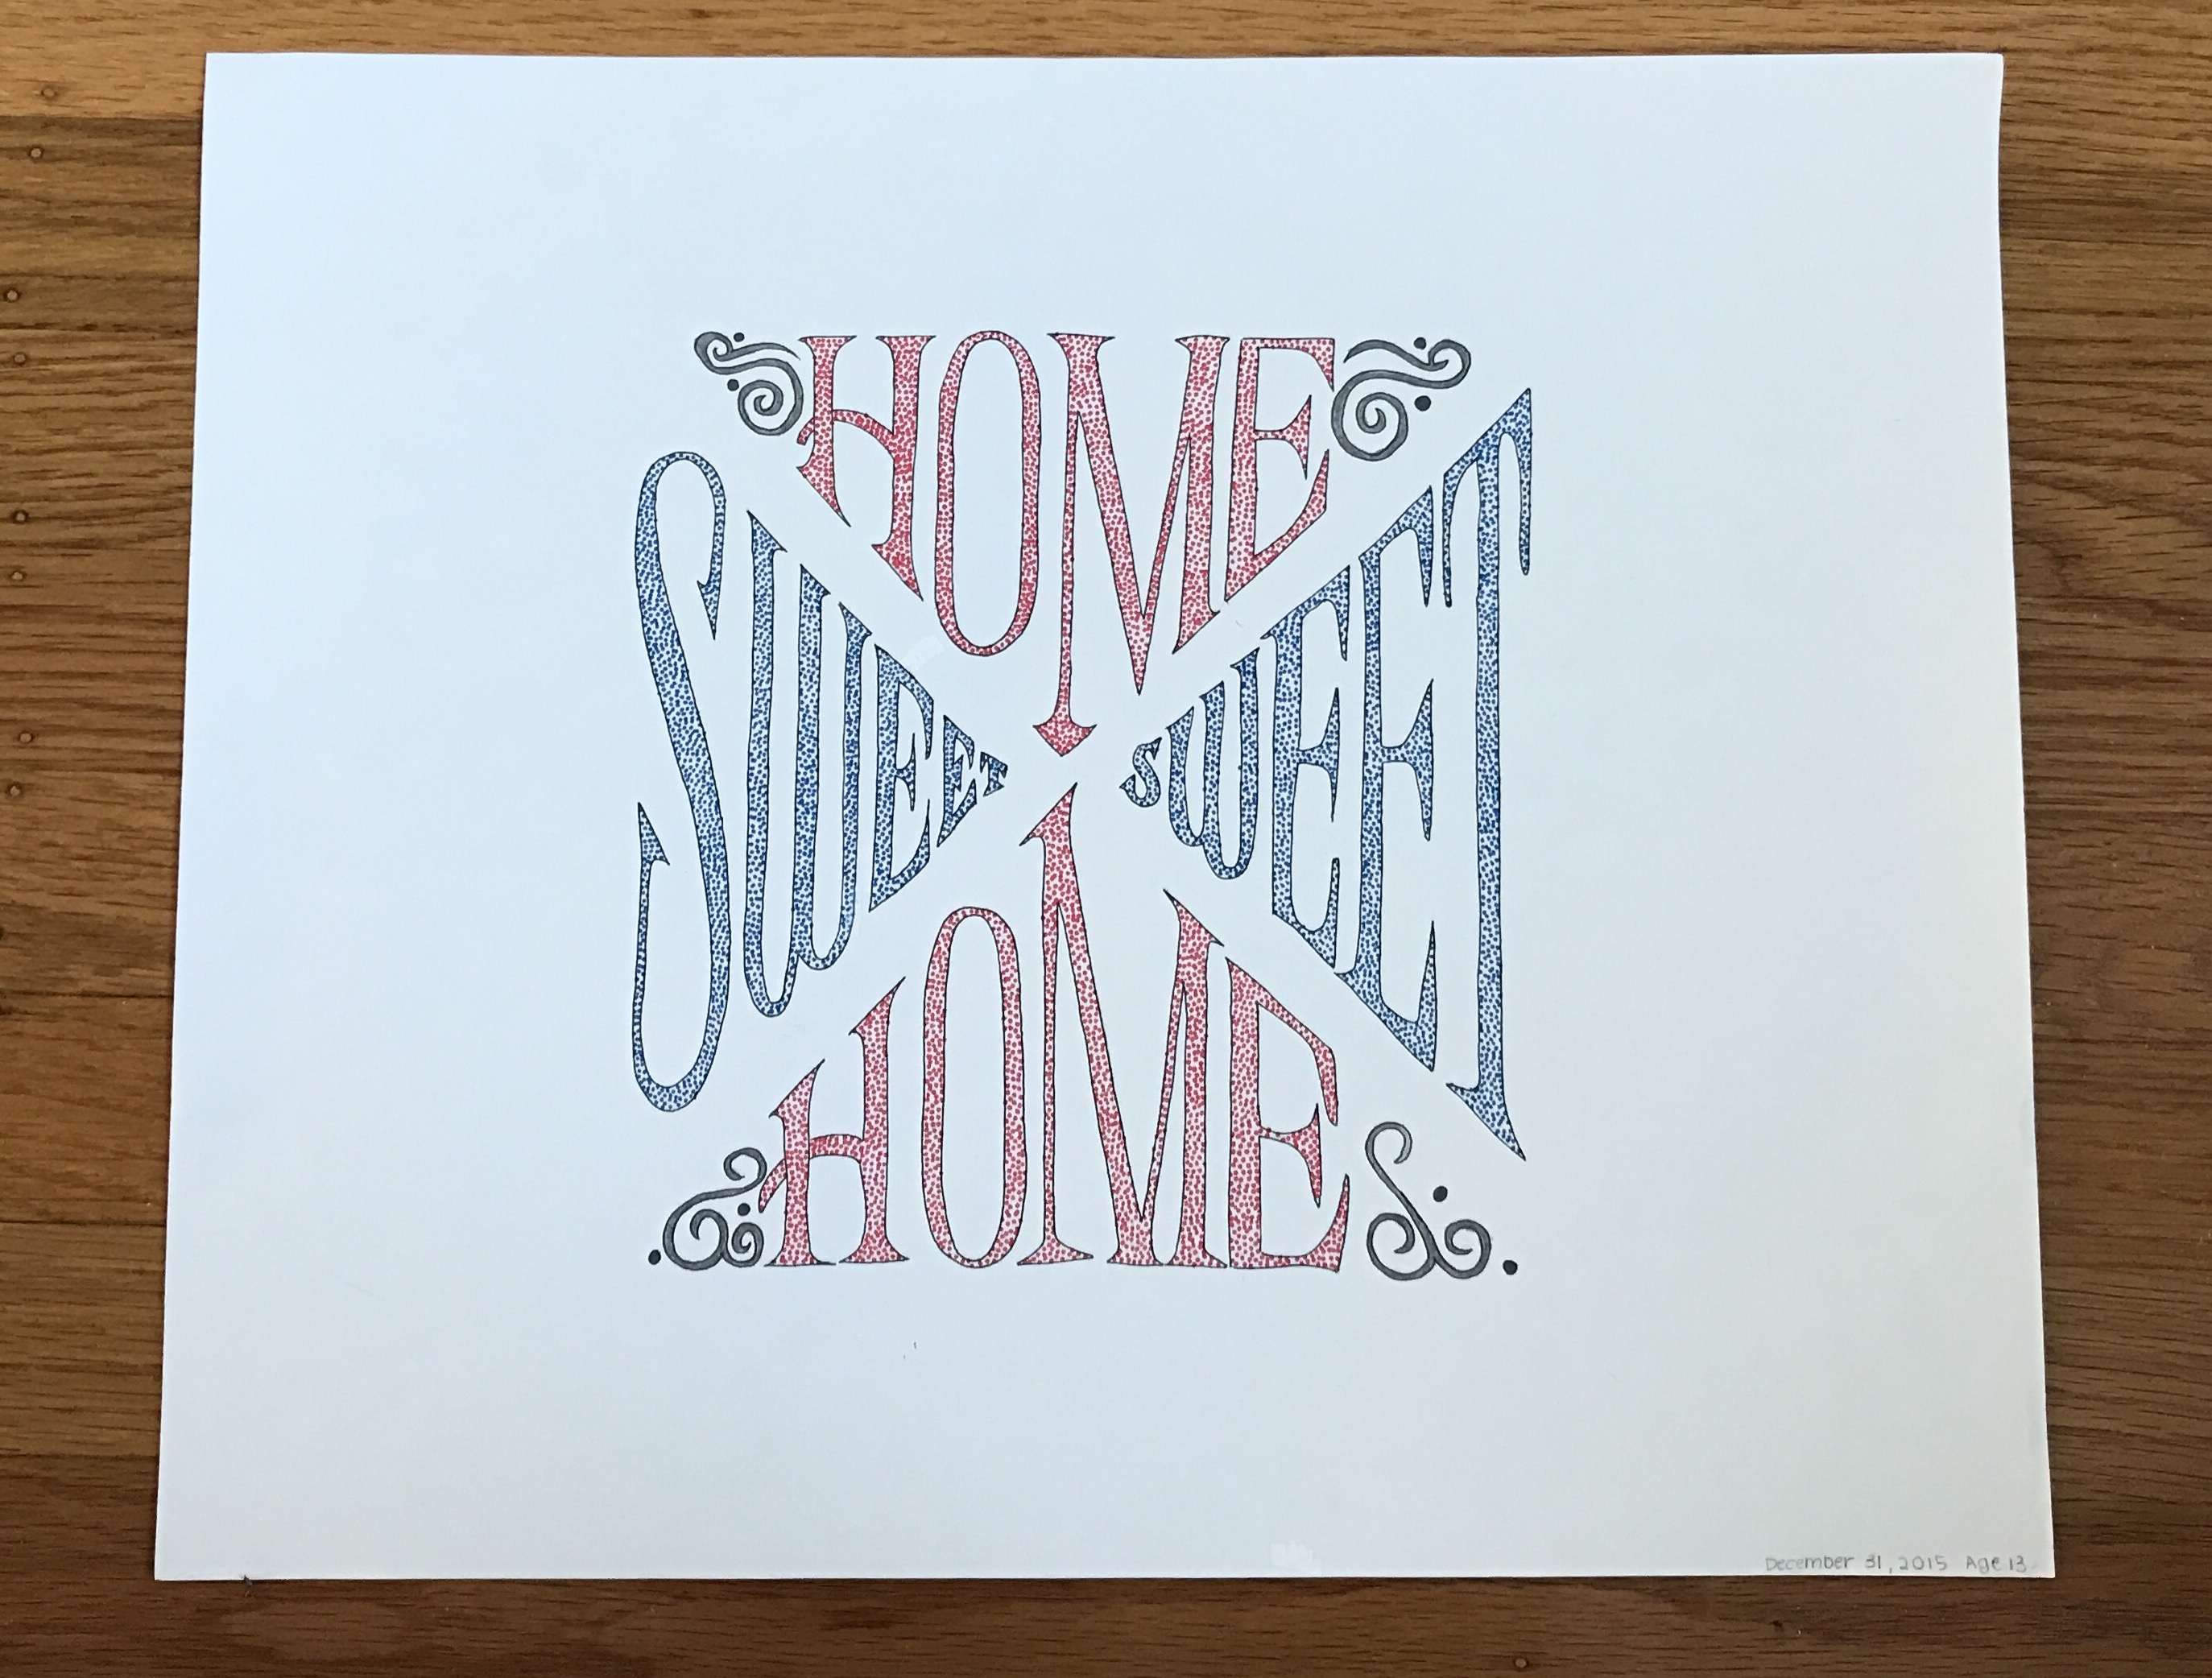 HOME
SWEET SWEET
HOME
December 31, 2015 Age 13